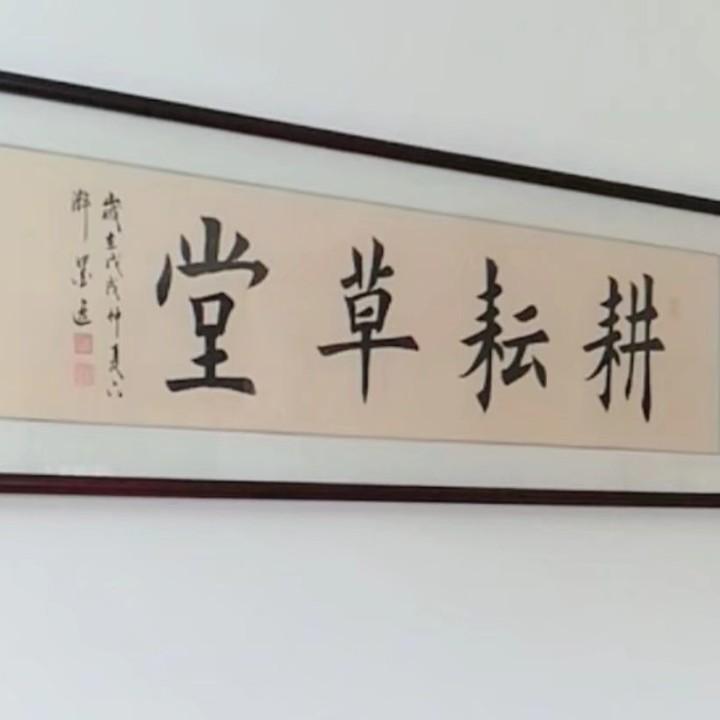 耕耘草堂
歲在戊戌仲夏六